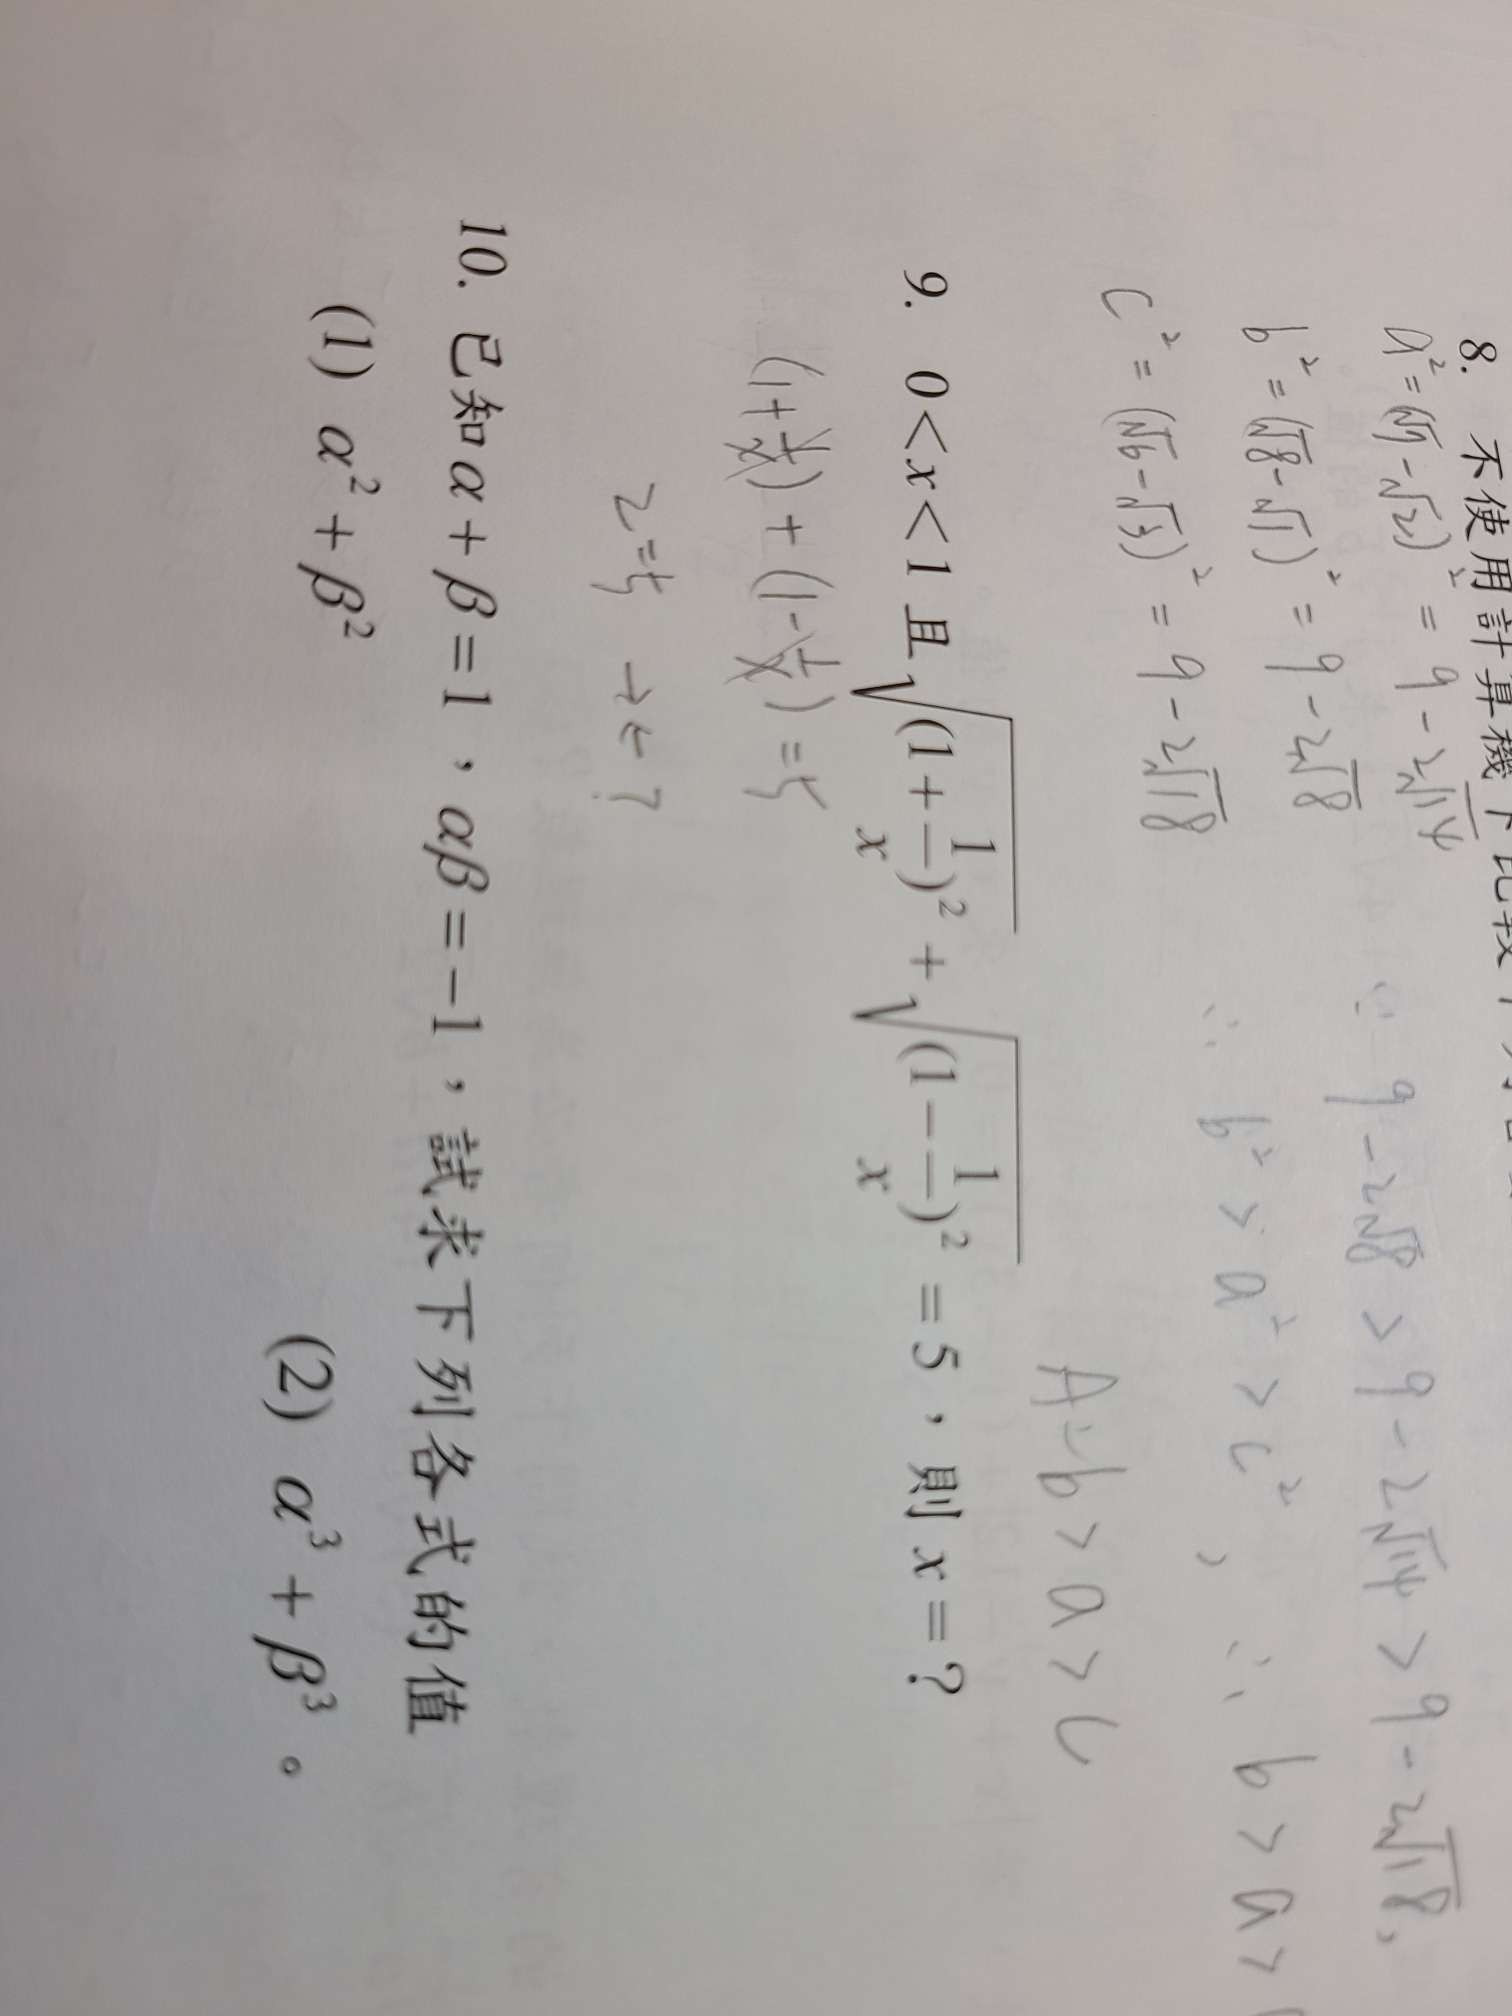 8. 不使用計算機下比較
a² = (√7 - √2)² = 9 - 2√14
b² = (√8 - √1)² = 9 - 2√8
c² = (√6 - √3)² = 9 - 2√18
∵ 9 - 2√8 > 9 - 2√14 > 9 - 2√18,
∴ b² > a² > c² , ∴ b > a >
A: b > a > c
9. 0 < x < 1 且 √(1 + 1/x)² + √(1 - 1/x)² = 5，則 x = ?
(1 + 1/x) + (1 - 1/x) = 5
2 = 5 →← ?
10. 已知 α + β = 1，αβ = -1，試求下列各式的值
(1) α² + β² (2) α³ + β³。